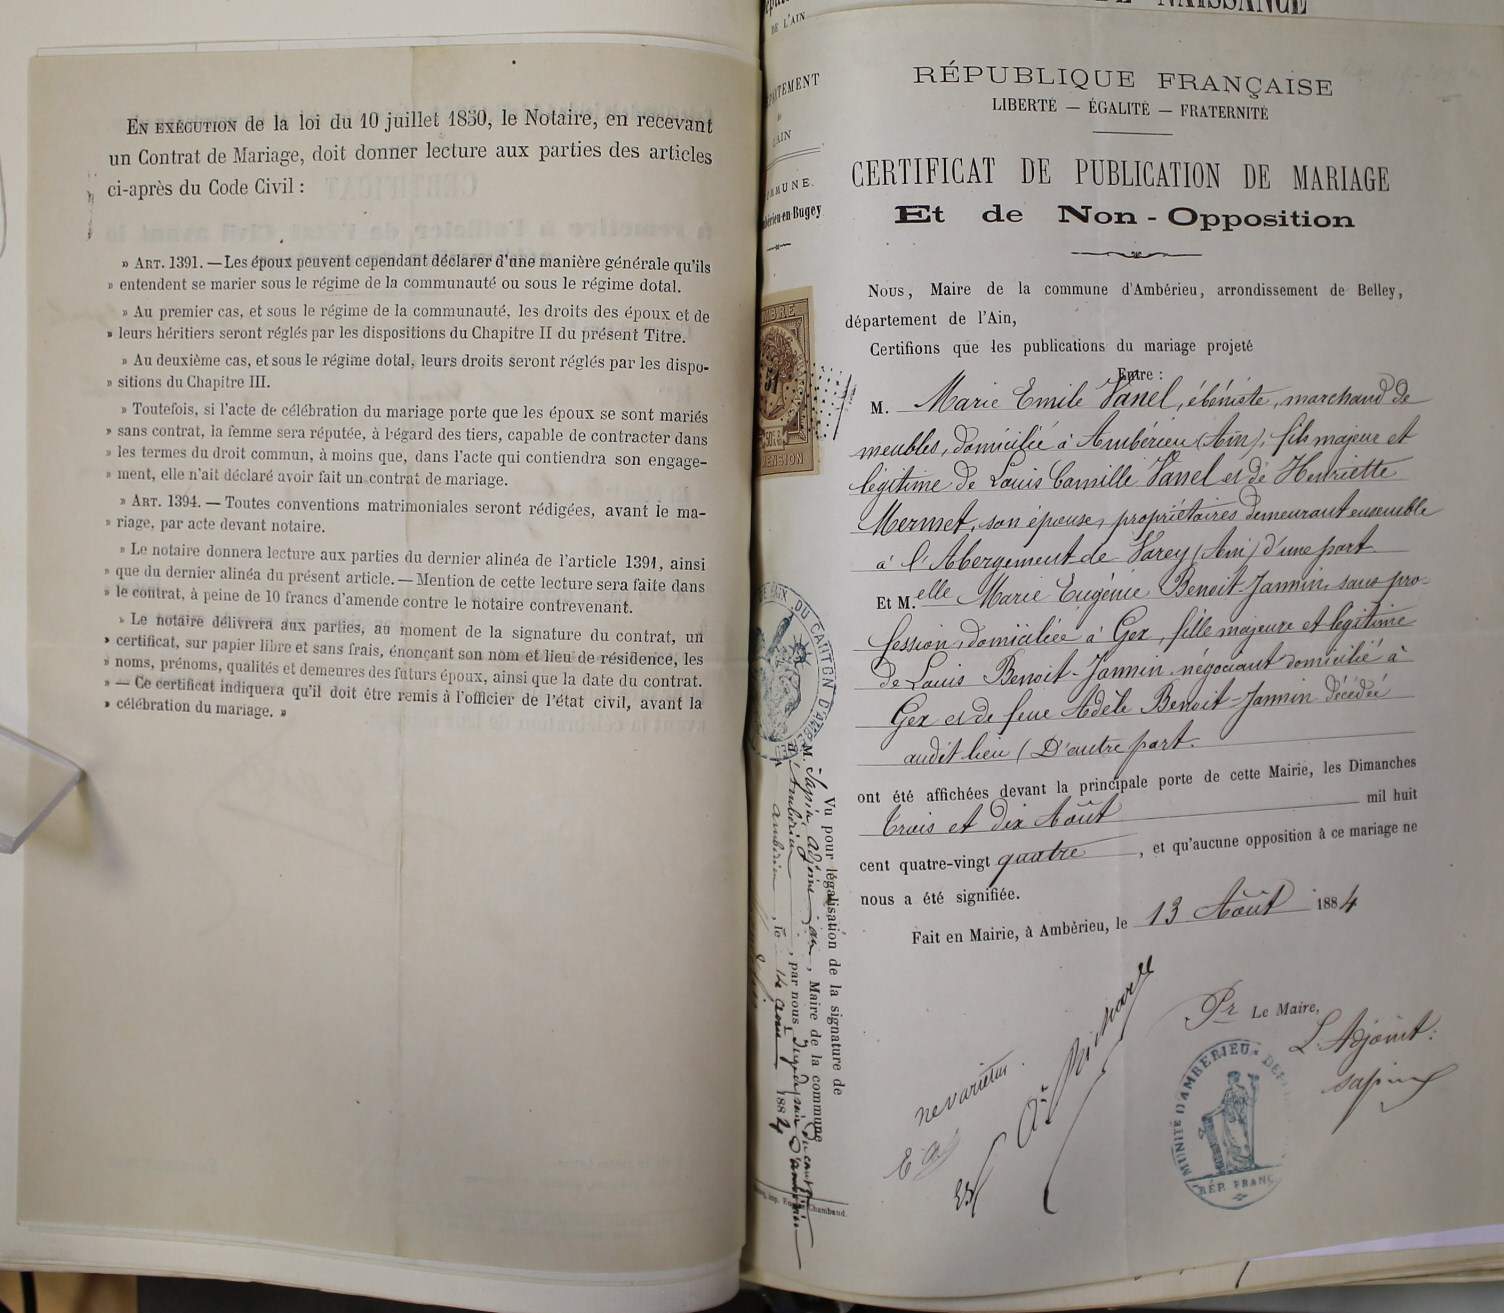 En exécution de la loi du 10 juillet 1850, le Notaire, en recevant
un Contrat de Mariage, doit donner lecture aux parties des articles
ci-après du Code Civil :
» Art. 1391. — Les époux peuvent cependant déclarer d'une manière générale qu'ils
» entendent se marier sous le régime de la communauté ou sous le régime dotal.
» Au premier cas, et sous le régime de la communauté, les droits des époux et de
» leurs héritiers seront réglés par les dispositions du Chapitre II du présent Titre.
» Au deuxième cas, et sous le régime dotal, leurs droits seront réglés par les dispo-
» sitions du Chapitre III.
» Toutefois, si l'acte de célébration du mariage porte que les époux se sont mariés
» sans contrat, la femme sera réputée, à l'égard des tiers, capable de contracter dans
» les termes du droit commun, à moins que, dans l'acte qui contiendra son engage-
» ment, elle n'ait déclaré avoir fait un contrat de mariage.
» Art. 1394. — Toutes conventions matrimoniales seront rédigées, avant le ma-
» riage, par acte devant notaire.
» Le notaire donnera lecture aux parties du dernier alinéa de l'article 1391, ainsi
» que du dernier alinéa du présent article. — Mention de cette lecture sera faite dans
» le contrat, à peine de 10 francs d'amende contre le notaire contrevenant.
» Le notaire délivrera aux parties, au moment de la signature du contrat, un
» certificat, sur papier libre et sans frais, énonçant son nom et lieu de résidence, les
» noms, prénoms, qualités et demeures des futurs époux, ainsi que la date du contrat.
» — Ce certificat indiquera qu'il doit être remis à l'officier de l'état civil, avant la
» célébration du mariage. »
DE NAISSANCE
DE L'AIN
RÉPUBLIQUE FRANÇAISE
LIBERTÉ — ÉGALITÉ — FRATERNITÉ
CERTIFICAT DE PUBLICATION DE MARIAGE
Et de Non-Opposition
Nous, Maire de la commune d'Ambérieu, arrondissement de Belley,
département de l'Ain,
Certifions que les publications du mariage projeté
Entre :
M. Marie Emile Vanel, ébéniste, marchand de
meubles, domicilié à Ambérieu (Ain), fils majeur et
légitime de Louis Camille Vanel et de Henriette
Mermet, son épouse, propriétaires demeurant ensemble
à l'Abergement de Varey (Ain) d'une part
Et M.elle Marie Eugénie Benoit-Jannin, sans pro-
fession, domiciliée à Gex, fille majeure et légitime
de Louis Benoit-Jannin, négociant domicilié à
Gex et de feue Adèle Benoit-Jannin décédée
audit lieu (D'autre part.
ont été affichées devant la principale porte de cette Mairie, les Dimanches
trois et dix Août mil huit
cent quatre-vingt quatre, et qu'aucune opposition à ce mariage ne
nous a été signifiée.
Fait en Mairie, à Ambérieu, le 13 Août 1884
Pr Le Maire,
L'Adjoint:
Sapin
ne varietur.
MUNITÉ D'AMBERIEU
RÉP. FRANÇ
Vu pour légalisation de la signature de
M. Sapin adjoint, Maire de la commune
d'Ambérieu, par nous
Ambérieu, le 14 août 1884
DU CANTON D'AM
51